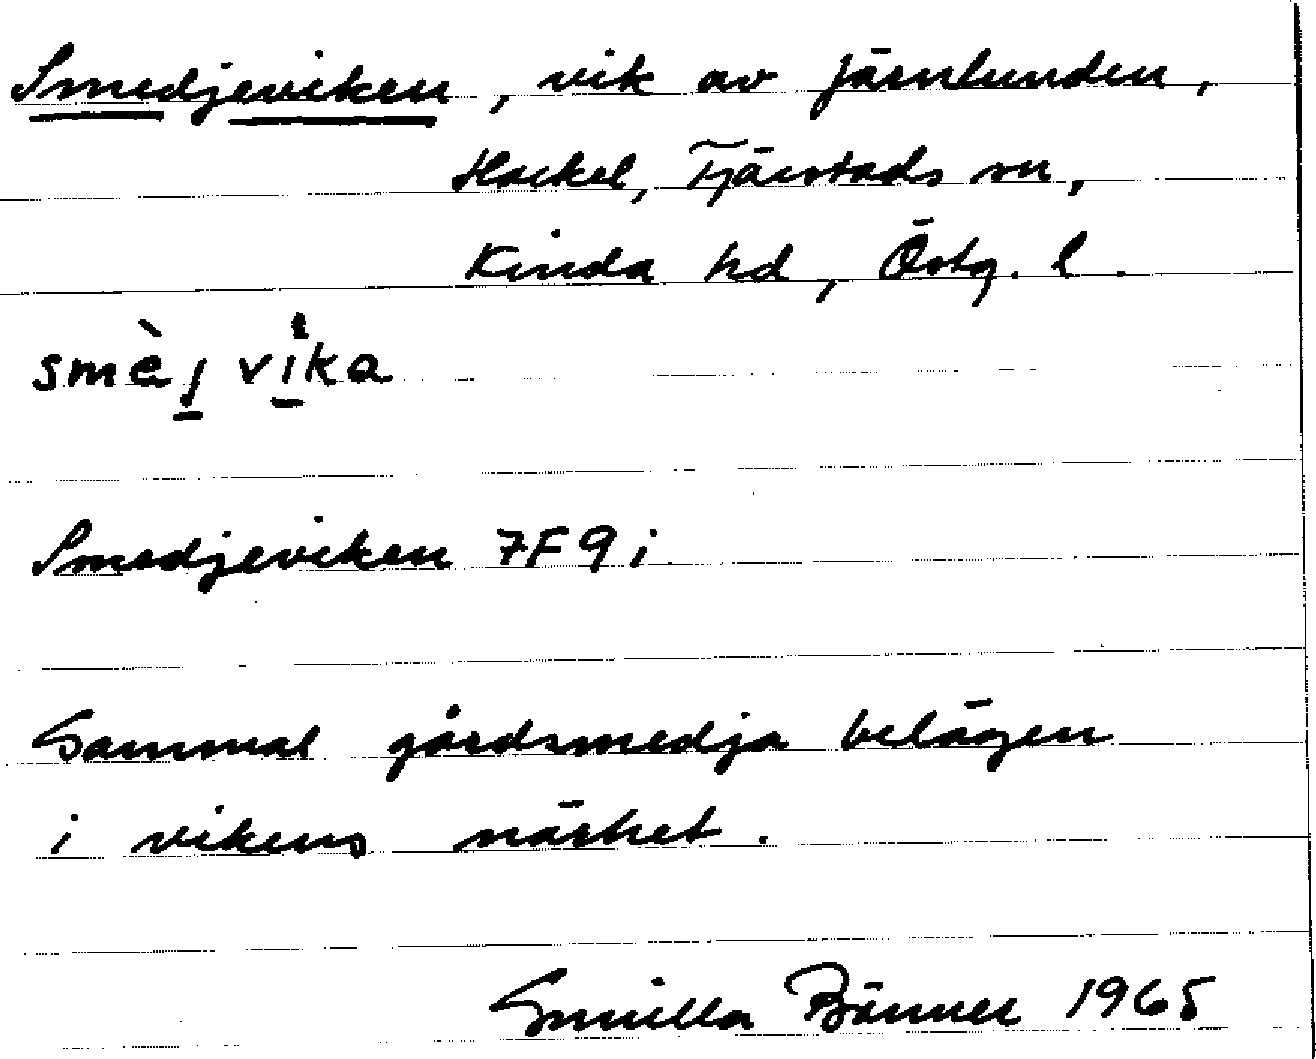 Smedjeviken, vik av Järnlunden,
Hackel, Tjärstads sn,
Kinda hd, Östg. l.
smèj vika
Smedjeviken 7F 9 i
Gammal gårdsmedja belägen
i vikens närhet.
Gunilla Bänner 1965